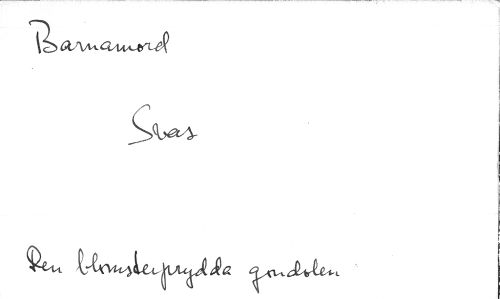 Barnamord
Svas
Den blomsterprydda gondolen